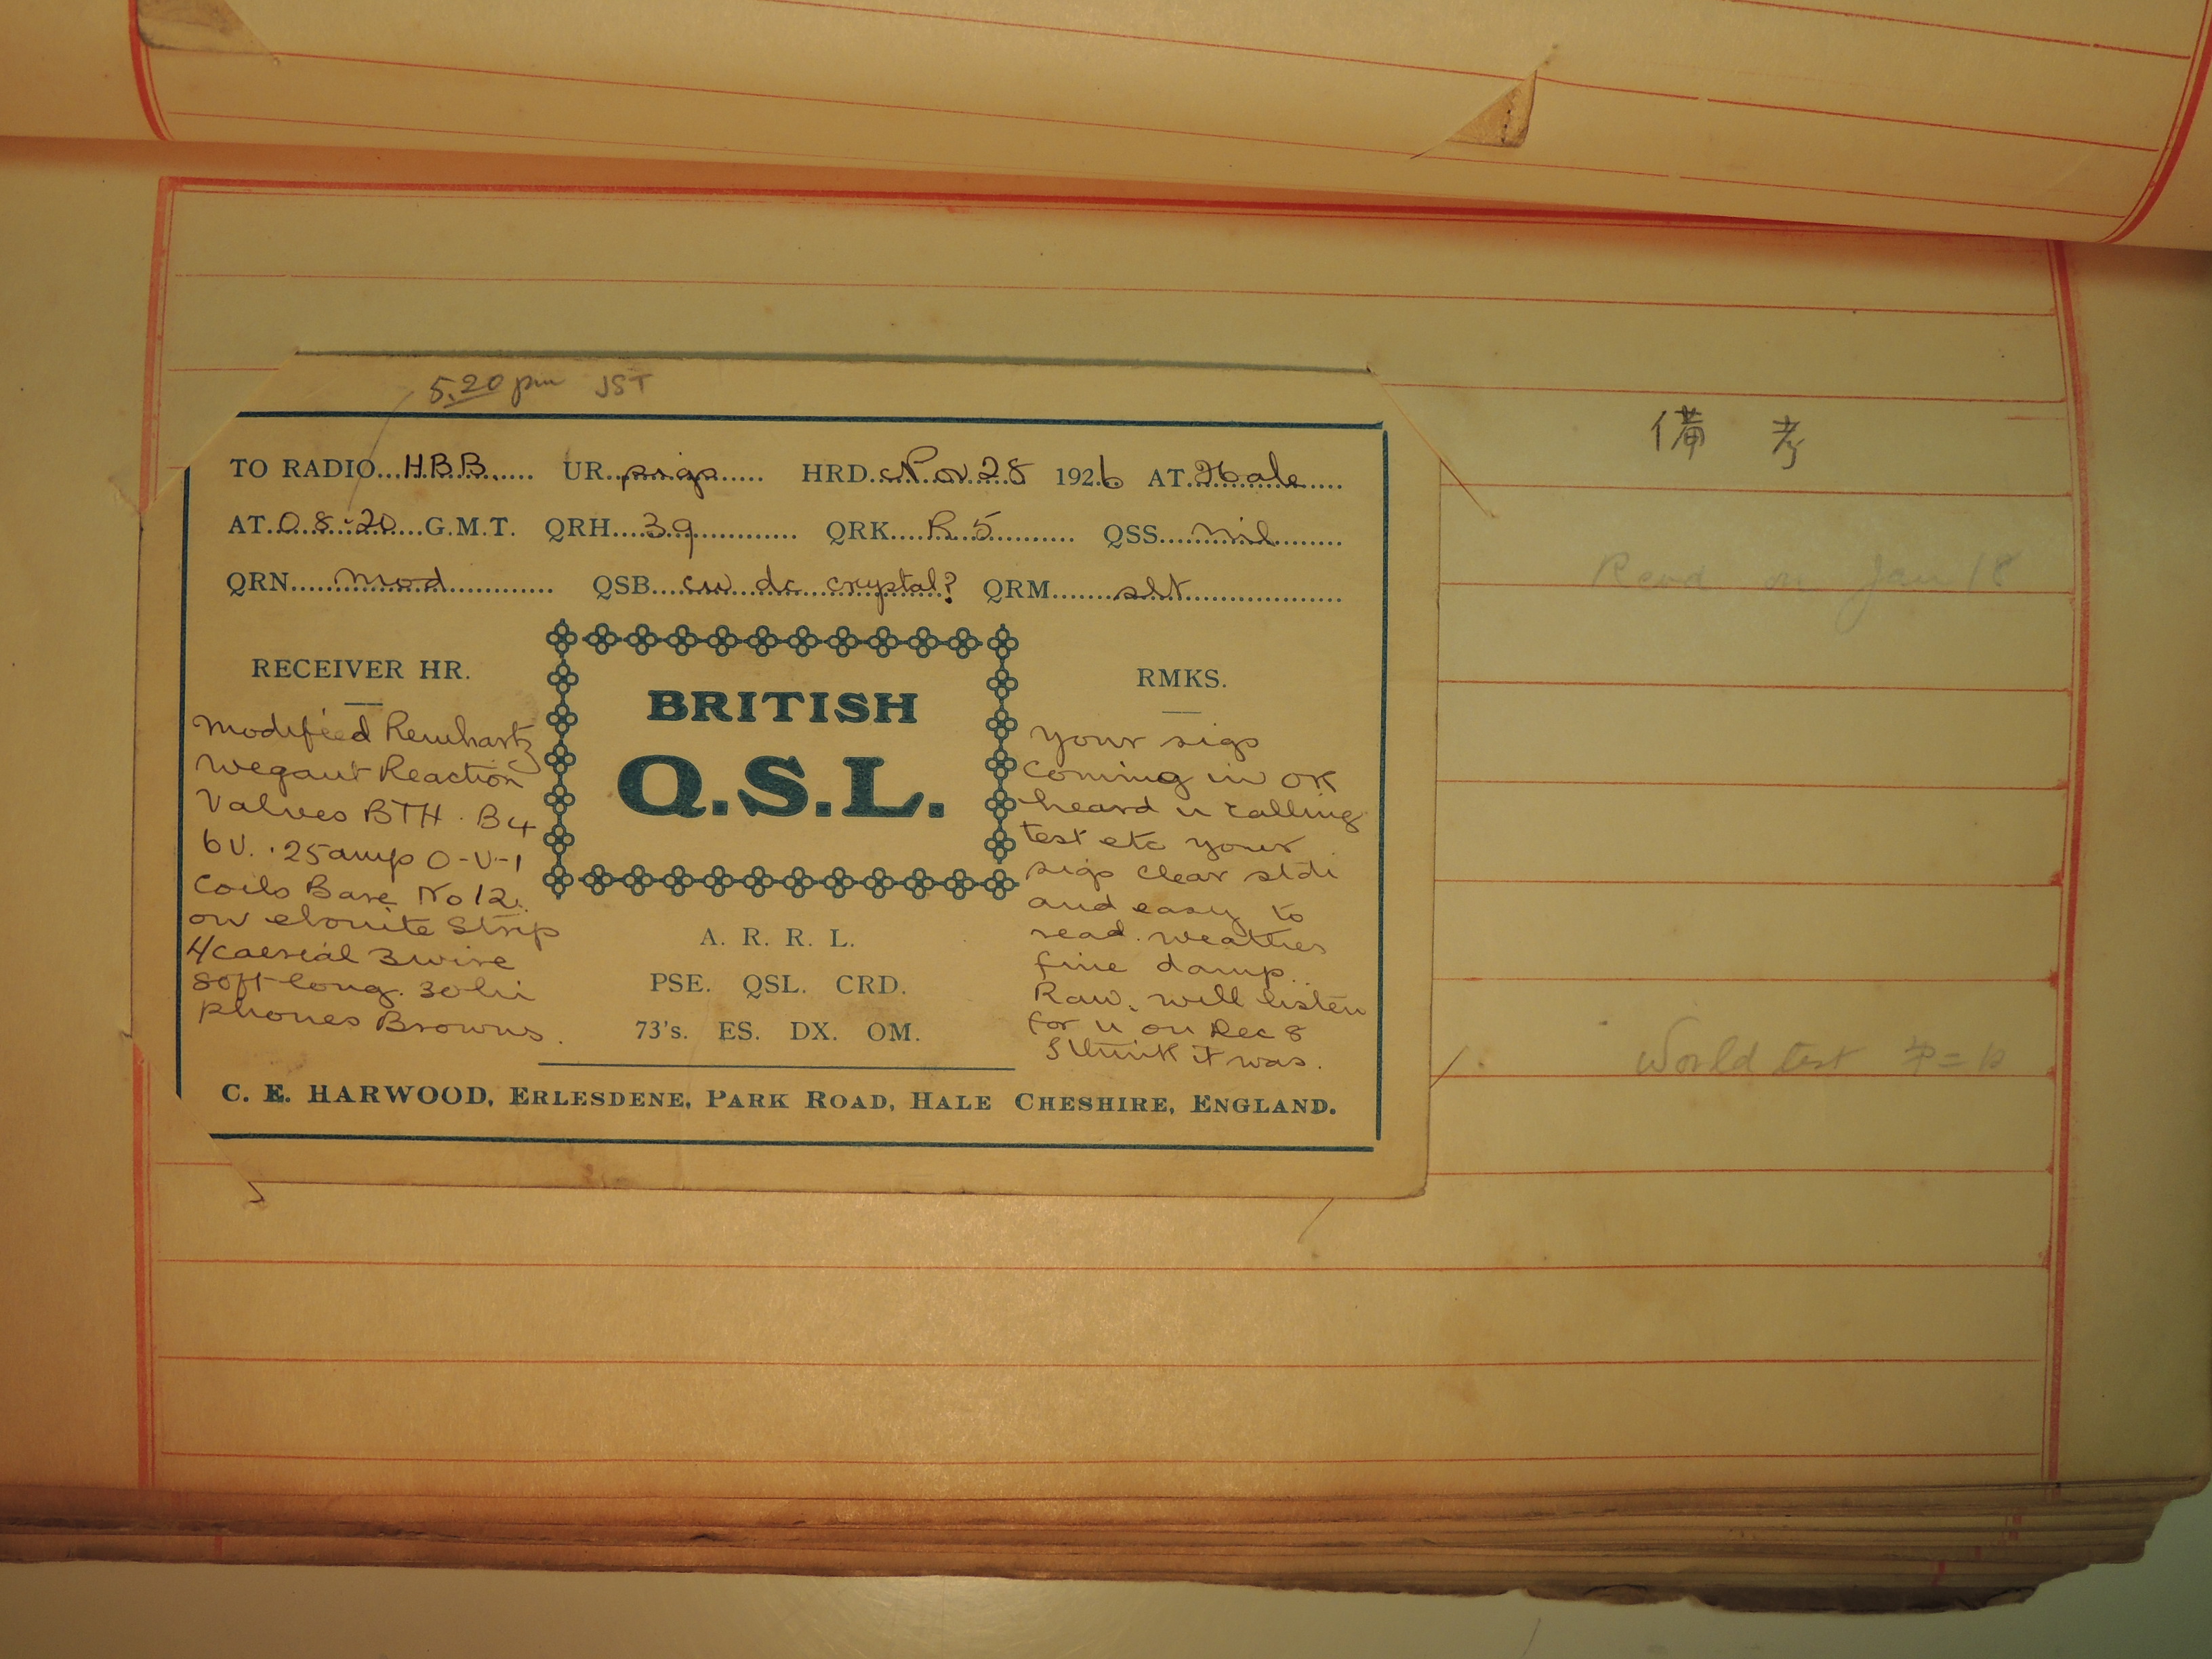 5.20 pm JST
TO RADIO...HBB...... UR..sigs...... HRD..Nov 28 1926 AT..Hale....
AT..08-20....G.M.T. QRH....39............ QRK....R5.......... QSS....nil.......
QRN.....mod........... QSB...cw dc crystal? QRM.......slt...............
RECEIVER HR.
modified Reinhartz
Wegant Reaction
Valves BTH . B4
6V. .25amp O-V-1
Coils Bare No 12.
on ebonite Strip
aerial 3 wire
80ft long. 30 hi
phones Browns.
BRITISH
Q.S.L.
A. R. R. L.
PSE. QSL. CRD.
73's. ES. DX. OM.
RMKS.
your sigs
coming in OK
heard u calling
test etc your
sigs clear stdi
and easy to
read. weather
fine damp.
Raw. will listen
for u on Dec 8
I think it was.
C. E. HARWOOD, ERLESDENE, PARK ROAD, HALE CHESHIRE, ENGLAND.
備 考
Recd on Jan 18
World test